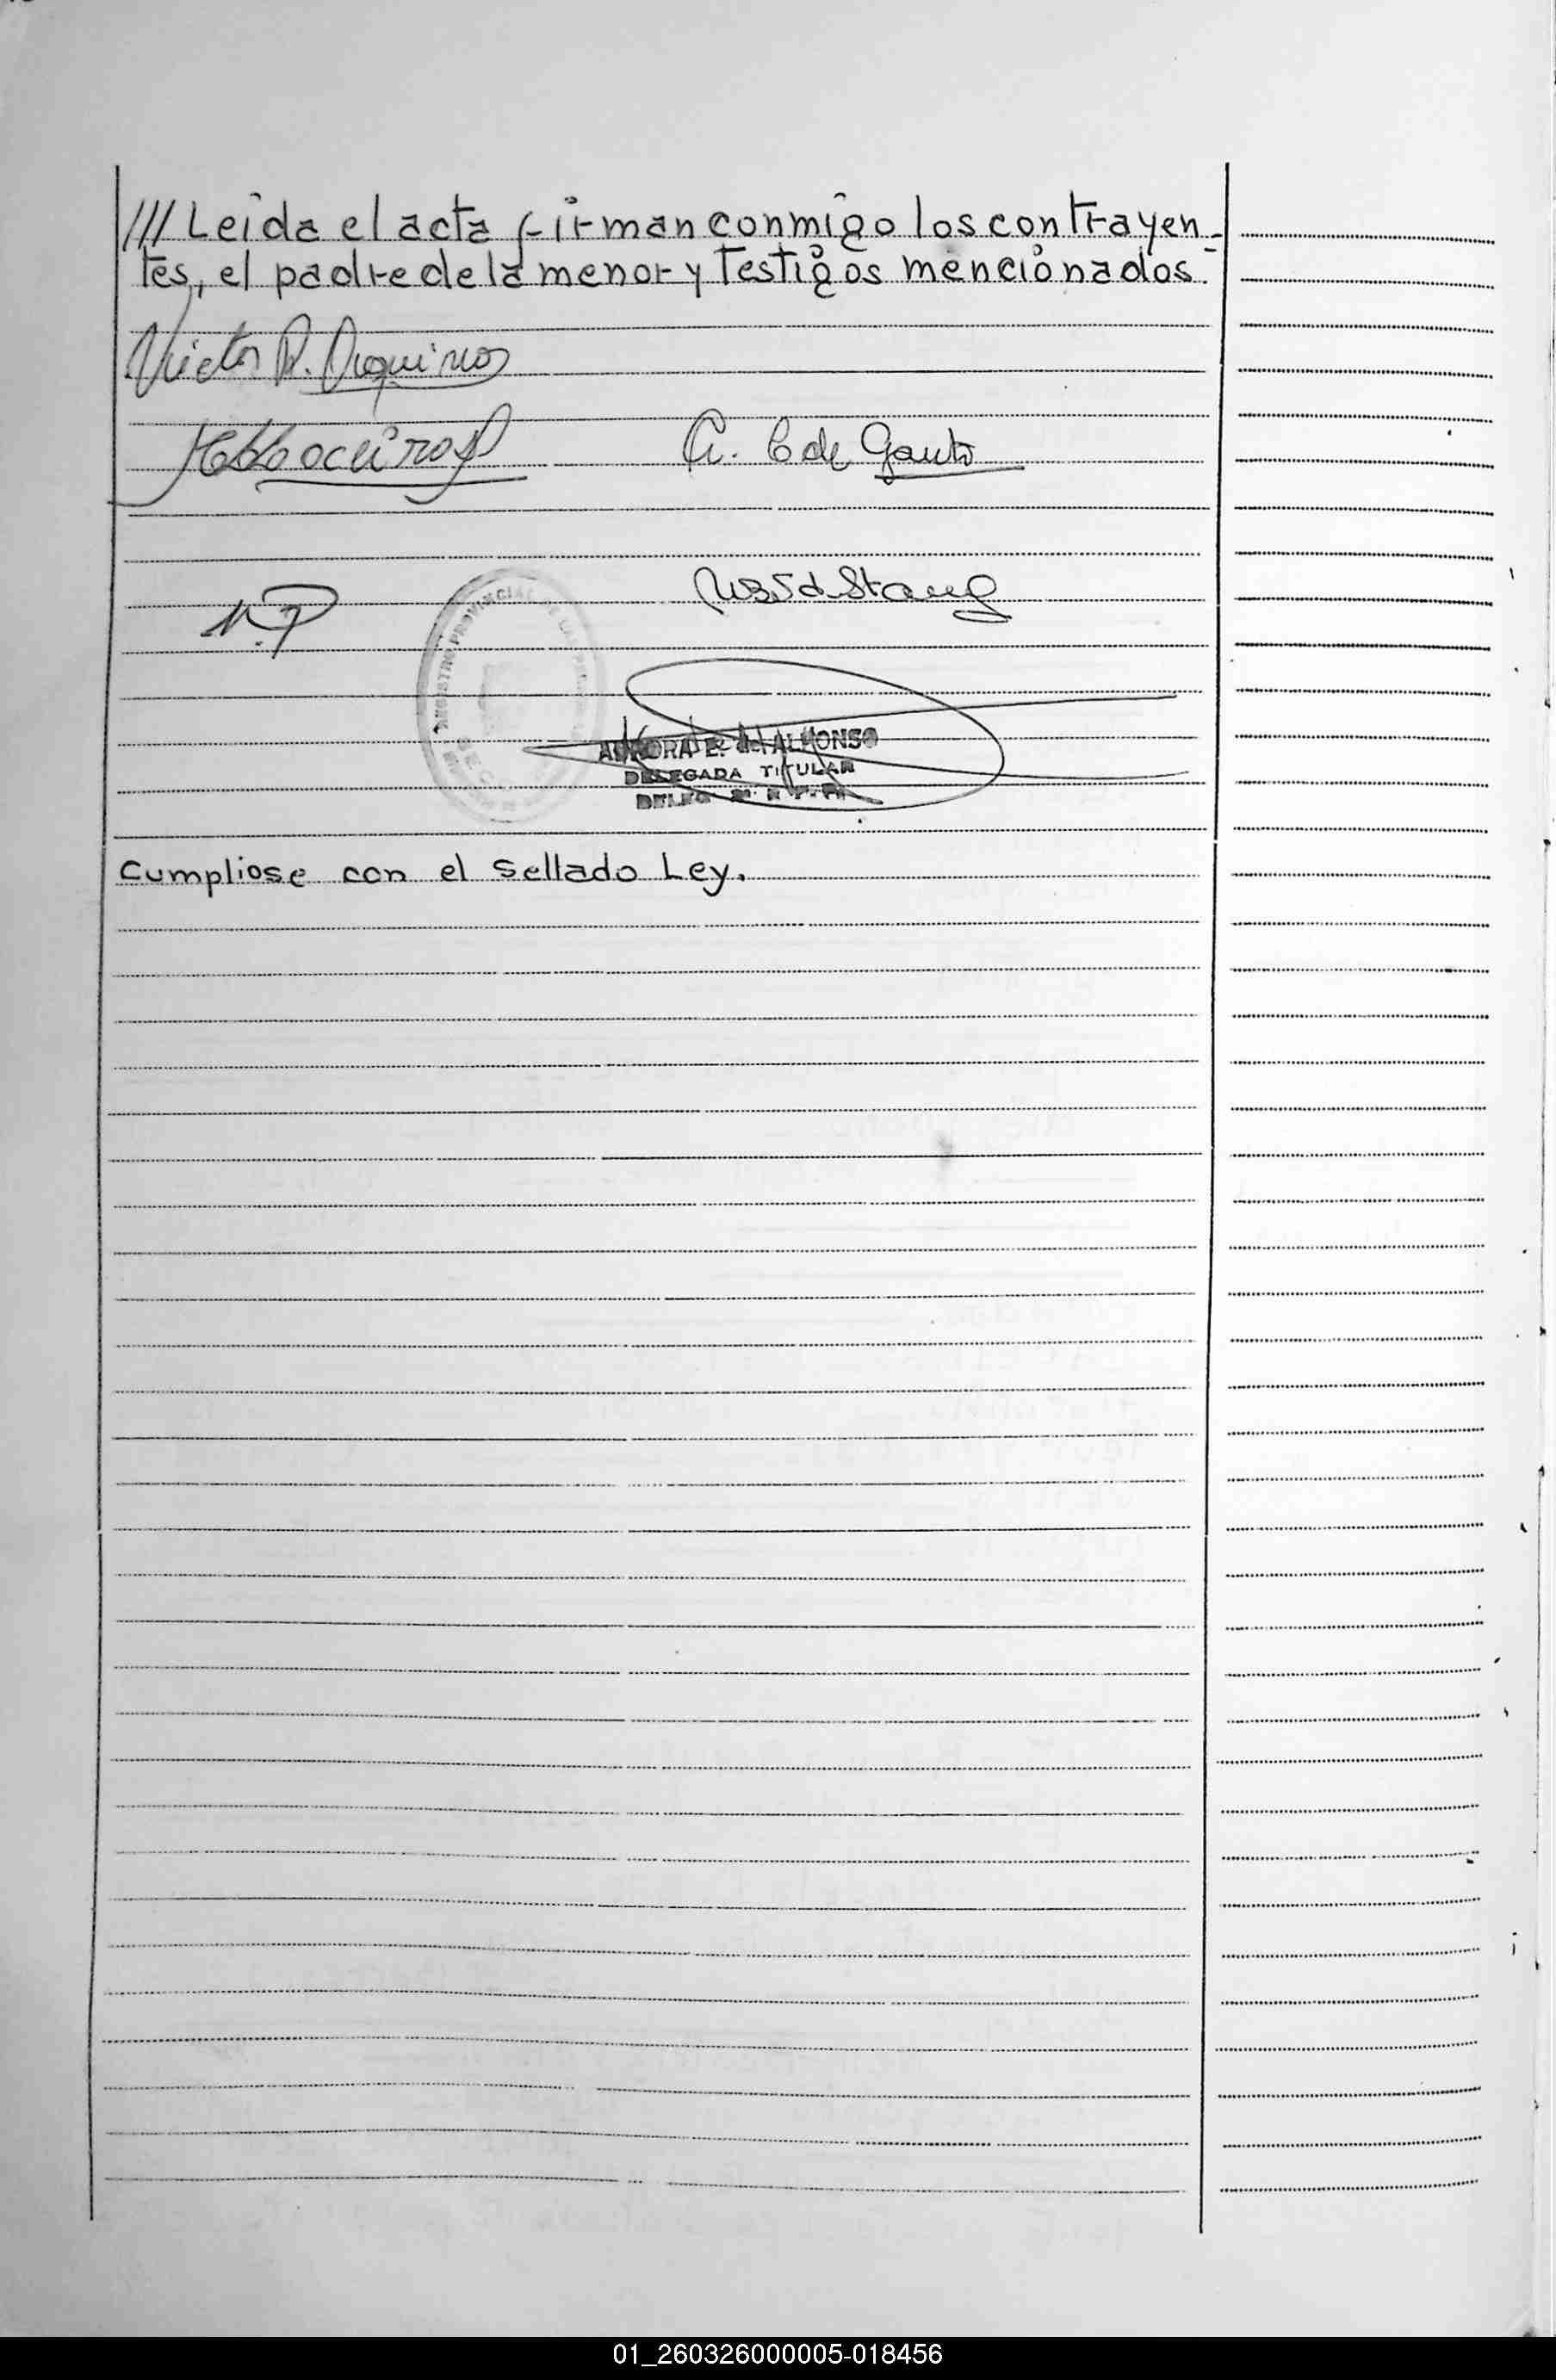 /// Leida el acta firman conmigo los contrayen-
tes, el padre de la menor y Testigos mencionados.-
Victor R.
A. C de Gauto
N.P
REGISTRO PROVINCIAL DE LAS
AURORA E. de ALMONSO
DELEGADA TITULAR
Cumpliose con el sellado Ley.
01_260326000005-018456